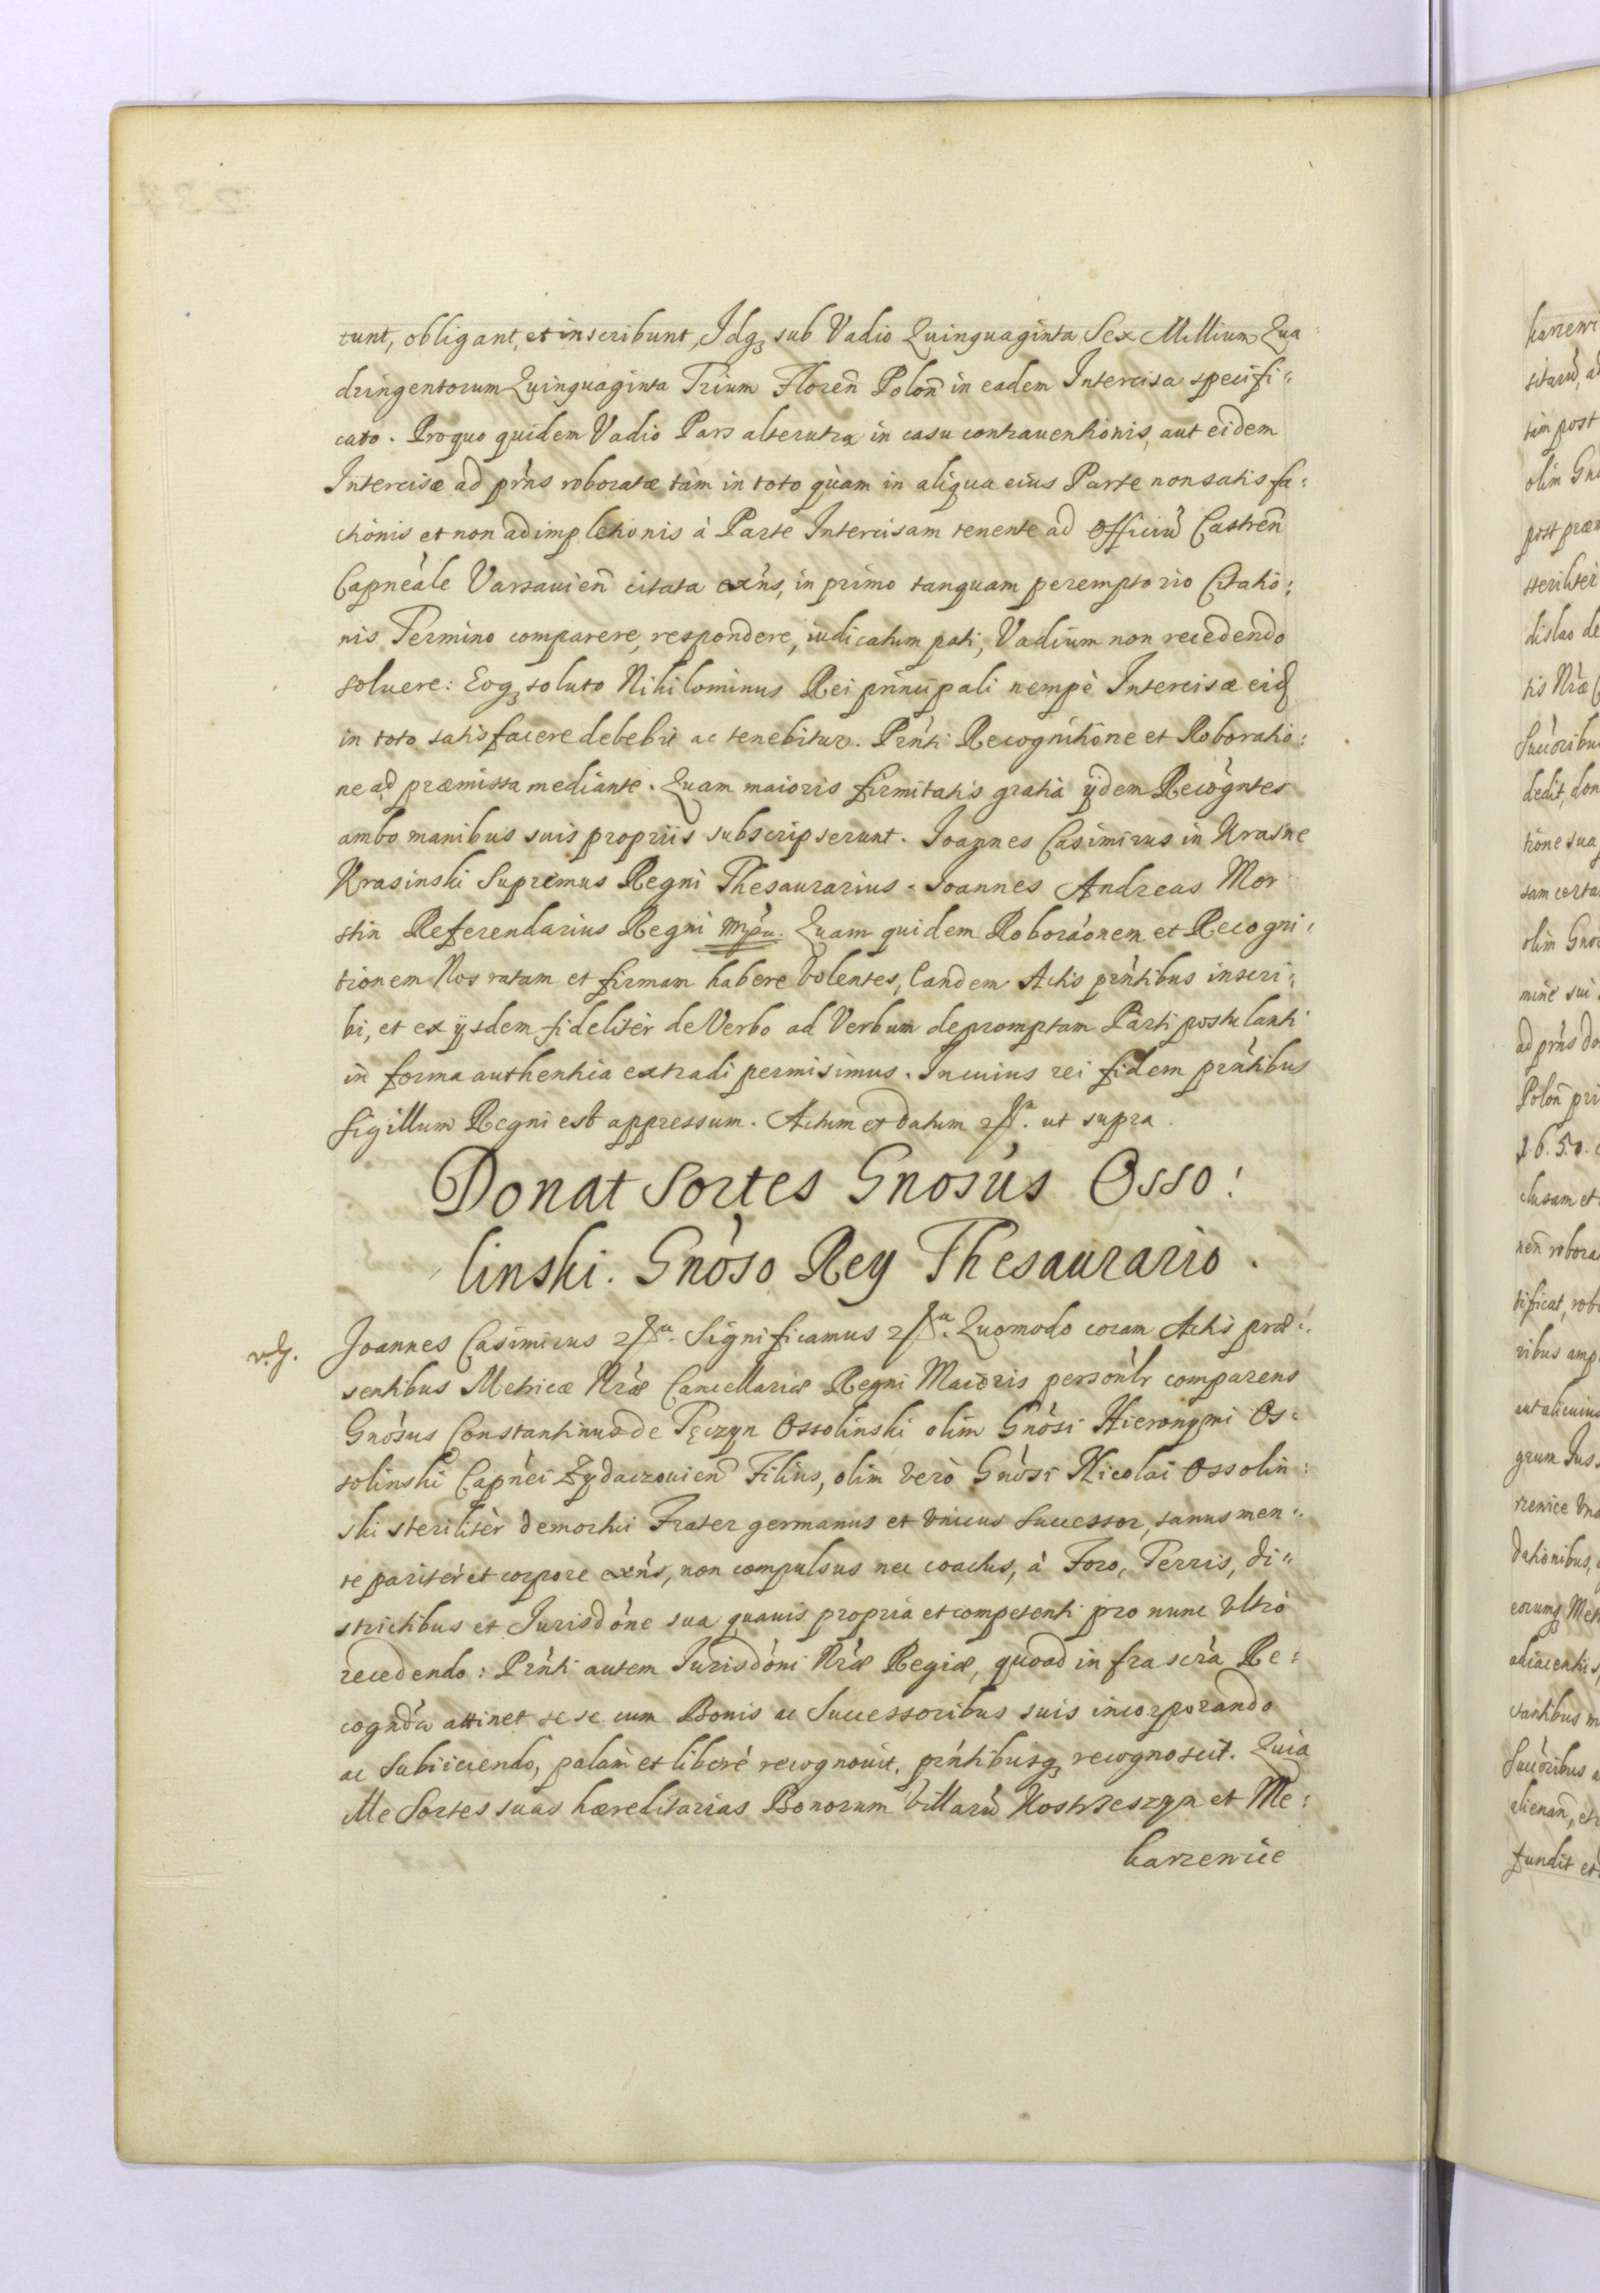 tunt, obligant, et inscribunt, Idq₃ sub Vadio Quinquaginta Sex Millium Qua
dringentorum Quinquaginta Trium Floreñ Poloñ in eadem Intercisa specifi:
cato. Pro quo quidem Vadio Pars alterutra in casu contrauentionis, aut eidem
Intercisæ ad prńs roboratæ tàm in toto quàm in aliqua eius Parte non satisfa:
ctionis et non adimpletionis à Parte Intercisam tenente ad Officiũ Castreñ
Capneále Varsauieñ citata exńs, in primo tanquam peremptorio Citatio:
nis Termino comparere, respondere, iudicatum pati, Vadium non recedendo
soluere: Eoq₃ soluto Nihilominus Rei principali nempè Intercisæ eid
in toto satisfacere debebit ac tenebitur. Prńti Recognitione et Roboratio:
ne ad præmissa mediante. Quam maioris firmitatis gratia ijdem Recogntes
ambo manibus suis proprijs subscripserunt. Joannes Casimirus in Krasne
Krasinski Supremus Regni Thesaurarius. Joannes Andreas Mor
stin Referendarius Regni mpa. Quam quidem Roboráonem et Recogni:
tionem Nos ratam et firmam habere volentes, Eandem Actis prńtibus inscri:
bi, et ex ijsdem fidelitèr de Verbo ad Verbum depromptam Parti postulanti
in forma authentica extradi permisimus. In cuius rei fidem prńtibus
Sigillum Regni est appressum. Actum et datum ut supra.
Donat Sortes Gnosús Osso:
linski. Gnóso Rey Thesaurario.
Joannes Casimirus Significamus Quomodo coram Actis præ:
sentibus Metricæ Nræ Cancellariæ Regni Maioris personlr comparens
Gnósus Constantinus de Tęczyn Ossolinski olim Gnósi Hieronymi Os:
solinski Capnéi Zydaczouień Filius, olim verò Gnósi Nicolai Ossolin:
ski sterilitèr demortui Frater germanus et vnicus Successor, sanus men:
te paritèr et corpore exńs, non compulsus nec coactus, à Foro, Terris, di:
strictibus et Jurisdóne sua quauis propria et competenti pro nunc vltrò
recedendo: Prńti autem Jurisdóni Nræ Regiæ, quoad infrascrá Re:
cognda attinet sese cum Bonis ac Successoribus suis incorporando
ac Subijciendo, palàm et liberè recognouit, prńtibusq₃ recognoscit. Quia
Ille Sortes suas hæreditarias Bonorum villarũ Kostrzeszyn et Me:
karzewice